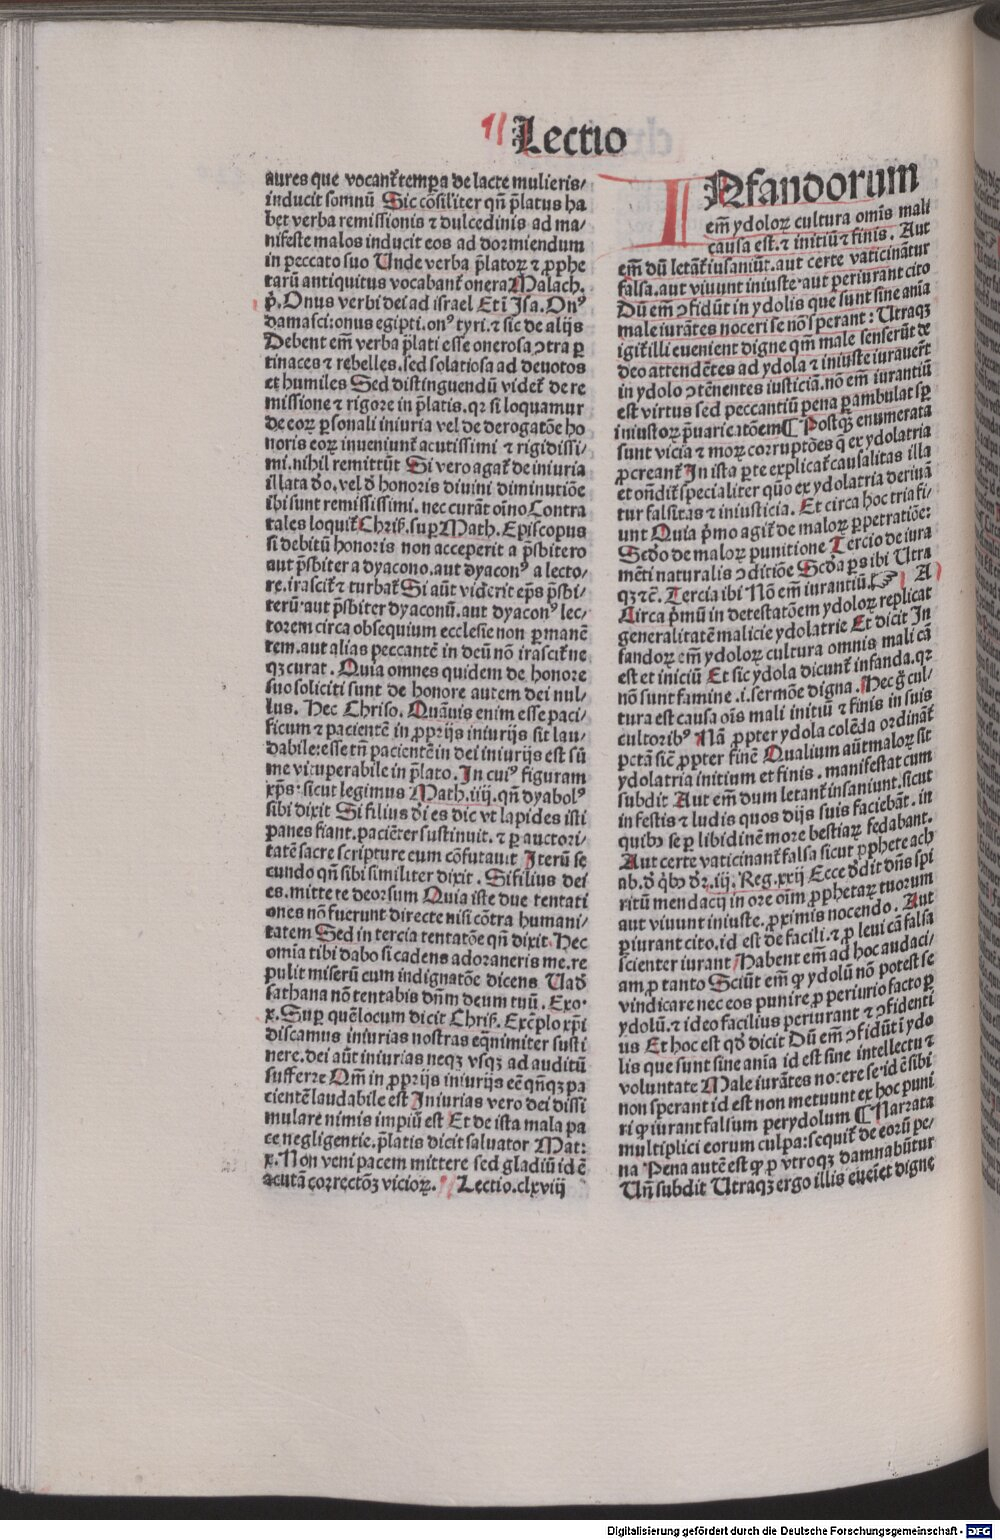 Lectio
aures que vocant̃ tempa de lacte mulieris/
inducit somnũ Sic cõsiliter qñ p̃latus ha
bet verba remissionis ⁊ dulcedinis ad ma/
nifeste malos inducit eos ad dormiendum
in peccato suo Unde verba p̃latoꝝ ⁊ ꝓphe
tarũ antiquitus vocabant̃ onera Malach.
p̃. Onus verbi dei ad israel Et i Jsa. Onꝰ
damasci: onus egipti. onꝰ tyri. ⁊ sic de alijs
Debent em̃ verba p̃lati esse onerosa ꝯtra ꝑ
tinaces ⁊ rebelles. sed solatiosa ad deuotos
et humiles Sed distinguendũ videt̃ de re
missione ⁊ rigore in p̃latis. qr si loquamur
de eoꝝ ꝑsonali iniuria vel de derogatõe ho
noris eoꝝ inueniunt̃ acutissimi ⁊ rigidissi/
mi. nihil remittũt Si vero agat̃ de iniuria
illata d̃o. vel d̃ honoris diuini diminutiõe
ibi sunt remississimi. nec curãt oĩno Contra
tales loquit̃ Chriß. suꝑ Math. Episcopus
si debitũ honoris non acceperit a p̃sbitero
aut p̃sbiter a dyacono. aut dyaconꝰ a lecto/
re. irascit̃ ⁊ turbat̃ Si aũt viderit ep̃s p̃sbi/
terũ. aut p̃sbiter dyaconũ. aut dyaconꝰ lec/
torem circa obsequium ecclesie non ꝑmanẽ
tem. aut alias peccantẽ in deũ nõ irascit̃ ne
qꝫ curat. Quia omnes quidem de honore
suo soliciti sunt de honore autem dei nul/
lus. Hec Chriso. Quãuis enim esse paci/
ficum ⁊ pacientẽ in ꝓprijs iniurijs sit lau/
dabile: esse tñ pacientẽ in dei iniurijs est sũ
me vituperabile in p̃lato. In cuiꝰ figuram
xp̃s: sicut legimus Math. iiij. qñ dyabolꝰ
sibi dixit Si filius dĩ es dic vt lapides isti
panes fiant. paciẽter sustinuit. ⁊ ꝑ auctori/
tatẽ sacre scripture eum cõfutauit Iterũ se
cundo qñ sibi similiter dixit. Si filius dei
es. mitte te deorsum Quia iste due tentati
ones nõ fuerunt directe nisi cõtra humani/
tatem Sed in tercia tentatõe qñ dixit. Hec
omĩa tibi dabo si cadens adoraneris me. re
pulit miserũ cum indignatõe dicens Uad̃
sathana nõ tentabis dñm deum tuũ. Exo.
x. Suꝑ quẽ locum dicit Chriß. Exẽplo xp̃i
discamus iniurias nostras eq̃nimiter susti
nere. dei aũt iniurias neqꝫ vsqꝫ ad auditũ
sufferre Qm̃ in ꝓprijs iniurijs eẽ qñqꝫ pa
cientẽ laudabile est Iniurias vero dei dissi
mulare nimis impiũ est Et de ista mala pa
ce negligentie. p̃latis dicit saluator Mat:
x. Non veni pacem mittere sed gladiũ id ẽ
acutã correctõꝫ vicioꝝ. Lectio. clxviij
INfandorum
em̃ ydoloꝝ cultura omĩs mali
causa est. ⁊ initiũ ⁊ finis. Aut
em̃ dũ letãt̃ iusaniũt. aut certe vaticinãtur
falsa. aut viuunt iniuste. aut periurant cito
Dũ em̃ ꝯfidũt in ydolis que sunt sine anĩa
male iurãtes noceri se nõ sperant: Utraqꝫ
igit̃ illi euenient digne qm̃ male senserũt de
deo attendẽtes ad ydola ⁊ iniuste iurauer̃t
in ydolo ꝯtẽnentes iusticiã. nõ em̃ iurantiũ
est virtus sed peccantiũ pena ꝑambulat sꝑ
iniustoꝝ p̃uaricatõem ¶ Postqꝫ enumerata
sunt vicia ⁊ moꝝ corruptões q̃ ex ydolatria
ꝓcreant̃ In ista ꝑte explicat̃ causalitas illa
et oñdit̃ specialiter quõ ex ydolatria deriuã
tur falsitas ⁊ iniusticia. Et circa hoc tria fi/
unt Quia p̃mo agit̃ de maloꝝ ꝑpetratiõe:
Scd̃o de maloꝝ punitione Tercio de iura
mẽti naturalis ꝯditiõe Scd̃a ꝑs ibi Utra
qꝫ ⁊c̃. Tercia ibi Nõ em̃ iurantiũ. ☞ A
Circa p̃mũ in detestatõem ydoloꝝ replicat
generalitatẽ malicie ydolatrie Et dicit In
fandoꝝ em̃ ydoloꝝ cultura omnis mali cã
est et iniciũ Et sic ydola dicunt̃ infanda. qr
nõ sunt famine. i. sermõe digna. Hec g̃ cul/
tura est causa oĩs mali initiũ ⁊ finis in suis
cultoribꝰ Nã ꝓpter ydola colẽda ordinãt̃
pctã sic̃ ꝓpter finẽ Qualium aũt maloꝝ sit
ydolatria initium et finis. manifestat cum
subdit Aut em̃ dum letant̃ insaniunt. sicut
in festis ⁊ ludis quos dijs suis faciebãt. in
quibꝫ se ꝑ libidinẽ more bestiaꝝ fedabant.
Aut certe vaticinant̃ falsa sicut ꝓphete ach
ab. d̃ q̃bꝫ dr̃. iij. Reg. xxij Ecce d̃dit dñs spi
ritũ mendacij in ore oĩm ꝓphetaꝝ tuorum
aut viuunt iniuste. ꝓximis nocendo. Aut
ꝑiurant cito. id est de facili. ⁊ ꝓ leui cã falsa
scienter iurant Habent em̃ ad hoc audaci/
am ꝓ tanto Sciũt em̃ ꝙ ydolũ nõ potest se
vindicare nec eos punire ꝓ periurio facto ꝑ
ydolũ. ⁊ ideo facilius periurant ⁊ ꝯfidenti
us Et hoc est qd̃ dicit Dũ em̃ ꝯfidũt i ydo
lis que sunt sine anĩa id est sine intellectu ⁊
voluntate Male iurãtes nocere se. id ẽ sibi
non sperant id est non metuunt ex hoc puni
ri ꝙ iurant falsum per ydolum ¶ Narrata
multiplici eorum culpa: sequit̃ de eorũ pe/
na Pena autẽ est ꝙ ꝓ vtroqꝫ damnabũtur
Uñ subdit Utraqꝫ ergo illis eueĩet digne
Digitalisierung gefördert durch die Deutsche Forschungsgemeinschaft - DFG